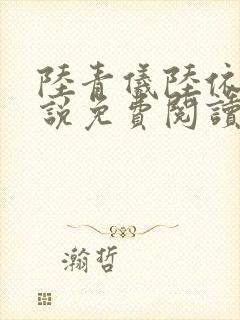 陸青儀陸依
說免費閱讀
瀚哲